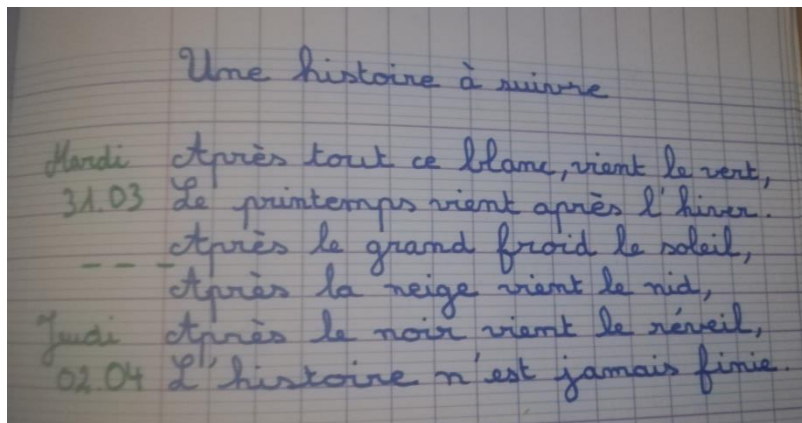 Une histoire à suivre
Mardi Après tout ce blanc, vient le vert,
31.03 Le printemps vient après l'hiver.
Après le grand froid le soleil,
Après la neige vient le nid,
Jeudi Après le noir vient le réveil,
02.04 L'histoire n'est jamais finie.